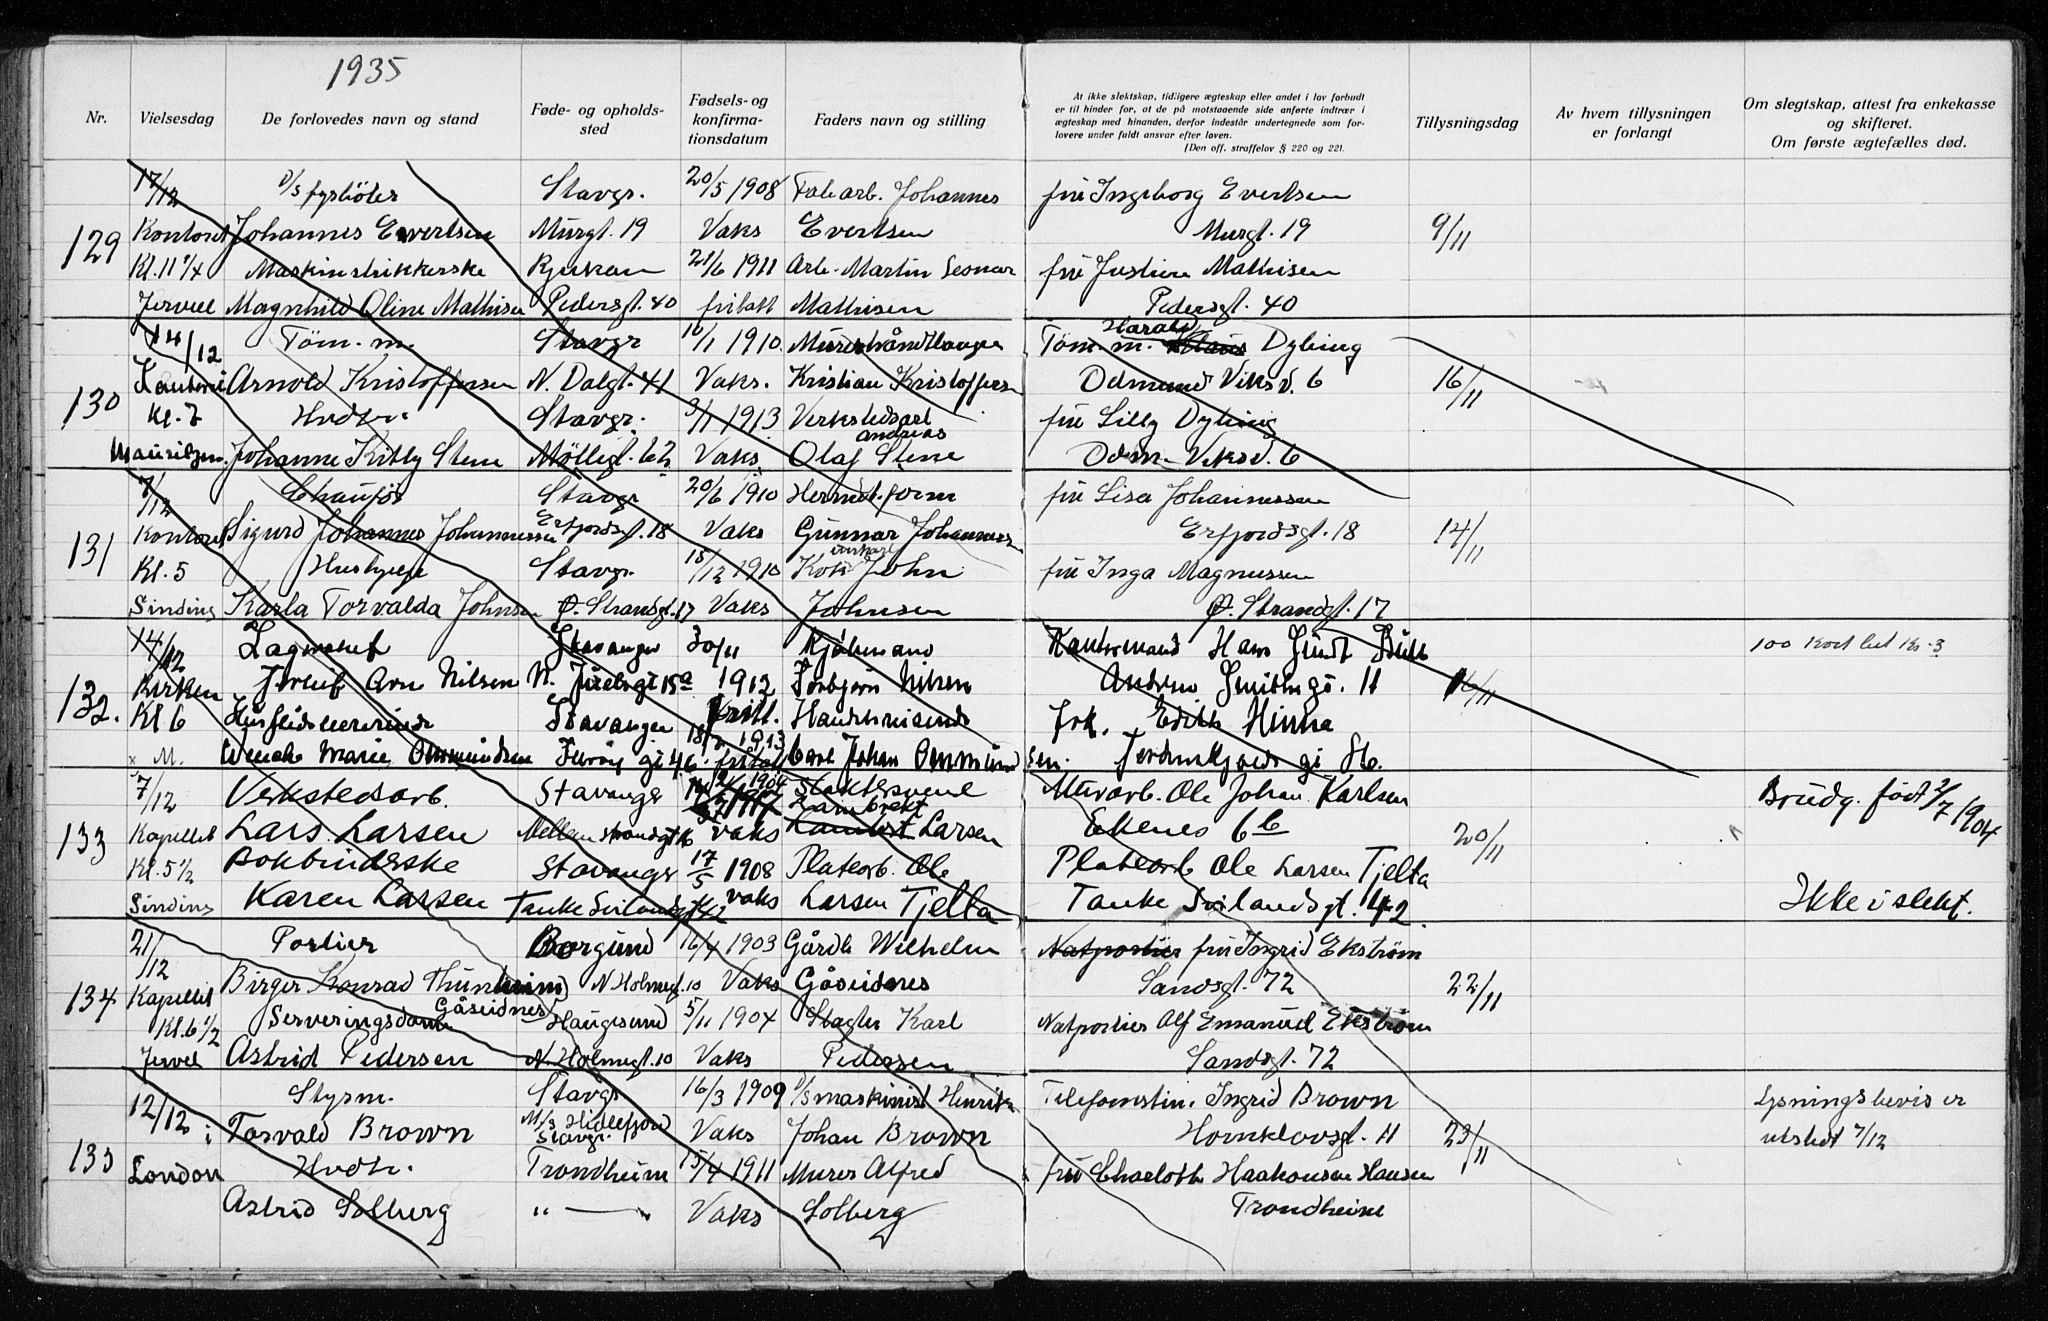 1935
Nr.
Vielsesdag
De forlovedes navn og stand
Føde- og opholds-
sted
Fødsels- og
konfirma-
tionsdatum
Faders navn og stilling
At ikke slektskap, tidligere ægteskap eller andet i lov forbudt
er til hinder for, at de på motstaaende side anførte indtrær i
ægteskap med hinanden, derfor indestår undertegnede som for-
lovere under fuldt ansvar efter loven.
(Den off. straffelov § 220 og 221.
Tillysningsdag
Av hvem tillysningen
er forlangt
Om slegtskap, attest fra enkekasse
og skifteret.
Om første ægtefælles død.
17/12 D/s fyrbøter Stavgr. 20/5 1908 Fabarb. Johannes fru Ingeborg Evertsen
129 Kontoret Johannes Evertsen Murgt. 19 Vaks Evertsen Murgt. 19 9/11
Kl. 11 1/4 Maskinstrikkerske Rjukan 21/6 1911 Arb. Martin Leonar fru Justine Mathisen
Jervell Magnhild Oline Mathisen Pedersgt. 40 fritatt Mathisen Pedersgt. 40
14/12 Tøm. m. Stavgr 16/1 1910 Murerhåndlanger Tøm. m. Harald Dybing
130 Arnold Kristoffersen N. Dalgt. 41 Vaks. Kristian Kristoffersen Odmund Viksv. 6 16/11
Kl. 7 Hvdtr. Stavgr. 3/1 1913 Verkstedsarb fru Lilly Dybing
Mauritzen. Johanne Kitty Stene Møllegt. 62 Vaks Olaf Andreas Stene Odm. Viksv. 6
7/12 Chauför Stavgr 20/6 1910 Hermet. form fru Lisa Johannessen
131 Kontoret Sigurd Johannes Johannessen Erfjordsgt. 18 Vaks Gunnar Johannessen Erfjordsgt. 18 14/11
Kl. 5 Hushjelp Stavgr. 18/12 1910 Kok John fru Inga Magnussen
Sinding Karla Torvalda Johnsen Ø. Strandgt. 17 Vaks Johnsen Ø. Strandgt. 17
14/12 Lagersjef Stavanger 30/11 Kjøbmand Hans 100 kort lut Kr. 3
132. Kirken Arn Nilsen 15a 1912 Torbjørn Nilsen 11 16/11
Kl 6 Stavanger fritt. frk. Edith Hinna
M. Wenche Marie Ommundsen 46 18/2 1913 fritatt Carl Johan Ommundsen.
7/12 Verkstedsarb. Stavanger 2/7 1904 Slaktersvene Murarb. Ole Johan Karlsen Brudg. født 2/7 1904
133 Kapellet Lars Larsen Mellemstrandgt 16 vaks Lambrekt Larsen Ekenes 6 b 20/11
Kl. 5 1/2 Bokbinderske Stavanger 17/5 1908 Platearb. Ole Platearb Ole Larsen Tjelta
Sinding Karen Larsen Tanke Svilandsgt 42 vaks Larsen Tjelta Tanke Svilandsgt. 42 Ikke i slekt.
21/12 Portier Borgund 16/4 1903 Gårdbr Wilhelm Natportier fru Ingrid Ekstrøm
134 Kapellet Birger Konrad Thunheim N Holmegt. 10 Vaks Gåseidnes Sandsgt. 72 22/11
Kl. 6 1/2 Serveringsdame Gåseidnes Haugesund 5/11 1904 Slagter Karl Natportier Alf Emanuel Ekstrøm
Jervell Astrid Pedersen N. Holmegt. 10 Vaks Pedersen Sandsgt. 72
12/12 i Styrm. Stavgr 16/3 1909 D/s maskinist Henrik Telefonistin. Ingrid Brown Lysningsbevis er
135 Torvald Brown M/s Hidlefjord Stavgr. Vaks Johan Brown Hornklovsgt. 11 23/11 utstedt 7/12
London Hvdtr. Trondheim 15/4 1911 Murer Alfred fru Charlotte Haakonsen Hansen
Astrid Solberg " — " Vaks Solberg Trondheim